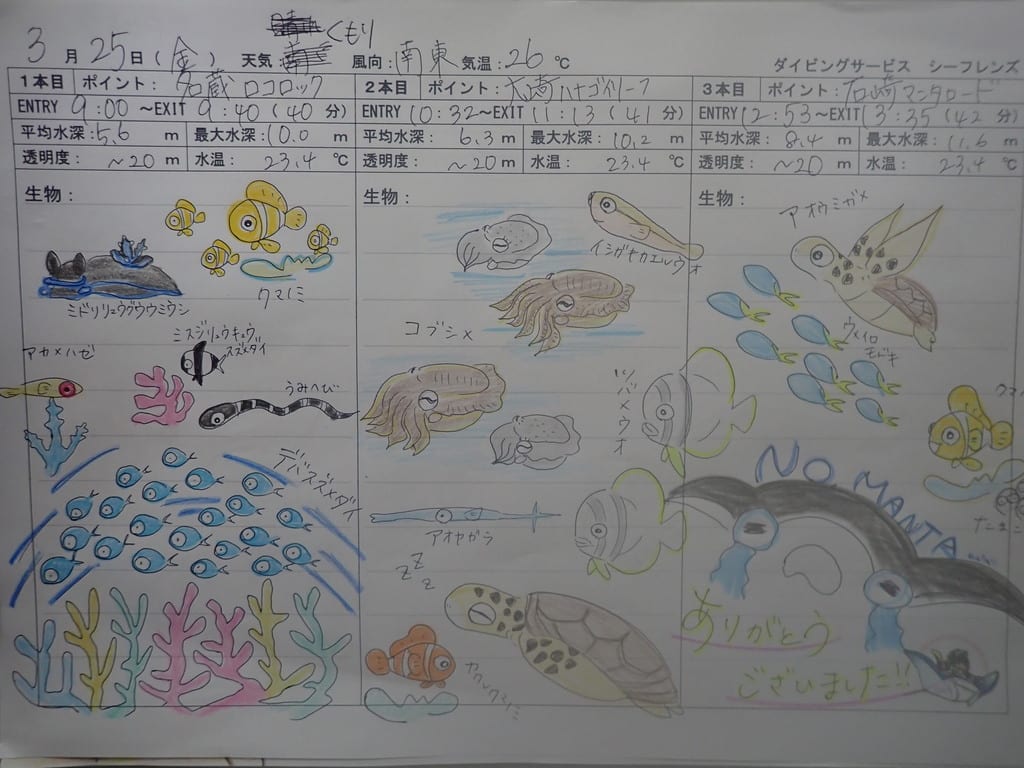 3月25日(金) 天気 くもり 風向:南東 気温:26℃
ダイビングサービス シーフレンズ
1本目 ポイント: 名蔵ロコロック
ENTRY 9:00 ~EXIT 9:40 (40分)
平均水深:5.6 m 最大水深:10.0 m
透明度: ~20 m 水温: 23.4 ℃
生物:
クマノミ
ミドリリュウグウウミウシ
ミスジリュウキュウ
スズメダイ
アカメハゼ
うみへび
デバスズメダイ
2本目 ポイント: 大崎ハナゴイリーフ
ENTRY 10:32~EXIT 11:13 (41分)
平均水深: 6.3 m 最大水深:10.2 m
透明度: ~20 m 水温: 23.4 ℃
生物:
イシガキカエルウオ
コブシメ
ツバメウオ
アオヤガラ
ZZZ
カクレクマノミ
3本目 ポイント: 石崎マンタロード
ENTRY 12:53~EXIT 13:35 (42分)
平均水深: 8.4 m 最大水深: 11.6 m
透明度: ~20 m 水温: 23.4 ℃
生物:
アオウミガメ
ウメイロ
モドキ
クマノ
たまご
NO MANTA
ありがとう
ございました!!